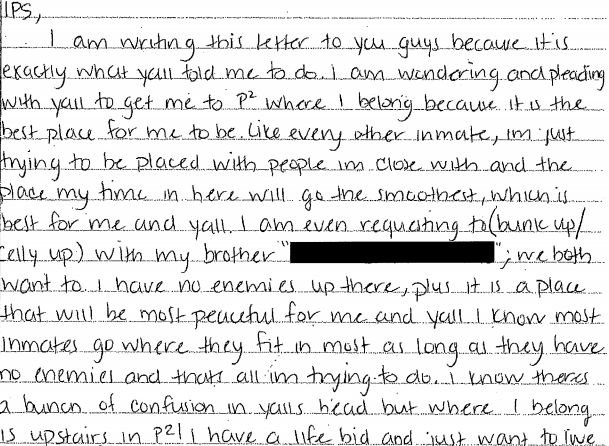 IPS,
I am writing this letter to you guys because it is
exactly what yall told me to do. I am wondering and pleading
with yall to get me to P2 where I belong because it is the
best place for me to be. Like every other inmate, im just
trying to be placed with people im close with and the
place my time in here will go the smoothest, which is
best for me and yall. I am even requesting to (bunk up/
celly up) with my brother " "; we both
want to I have no enemies up there, plus it is a place
that will be most peaceful for me and yall I know most
inmates go where they fit in most as long as they have
no enemies and thats all im trying to do. I know theres
a bunch of confusion in yalls head but where I belong
is upstairs in P2! I have a life bid and just want to live